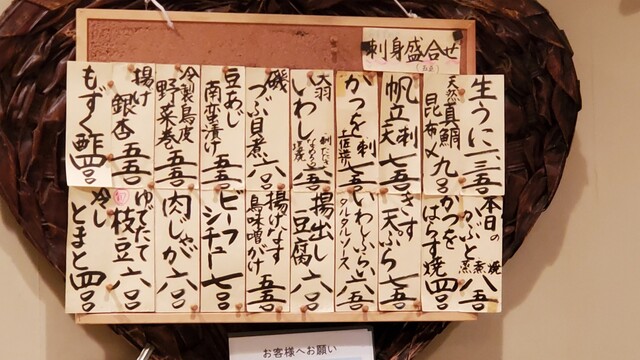 刺身盛合せ
生うに 一、三五〇
天然真鯛昆布〆 九〇〇
帆立 刺 天 七五〇
かつを 刺 土佐造り 七五〇
大羽いわし 八五〇
磯つぶ貝煮 六〇〇
豆あじ南蛮漬け 五五〇
冷製鳥皮野菜巻 五五〇
揚げ銀杏 五五〇
もずく酢 四五〇
本日のかぶと 蒸 煮 焼 八五〇
かつをはらす焼 四五〇
きす天ぷら 七五〇
いわしふらい タルタルソース 六五〇
揚出し豆腐 六〇〇
揚げなす鳥味噌がけ 五五〇
ビーフシチュー 七〇〇
肉じゃが 六〇〇
ゆでたて枝豆 六〇〇
冷しとまと 四〇〇
お客様へお願い